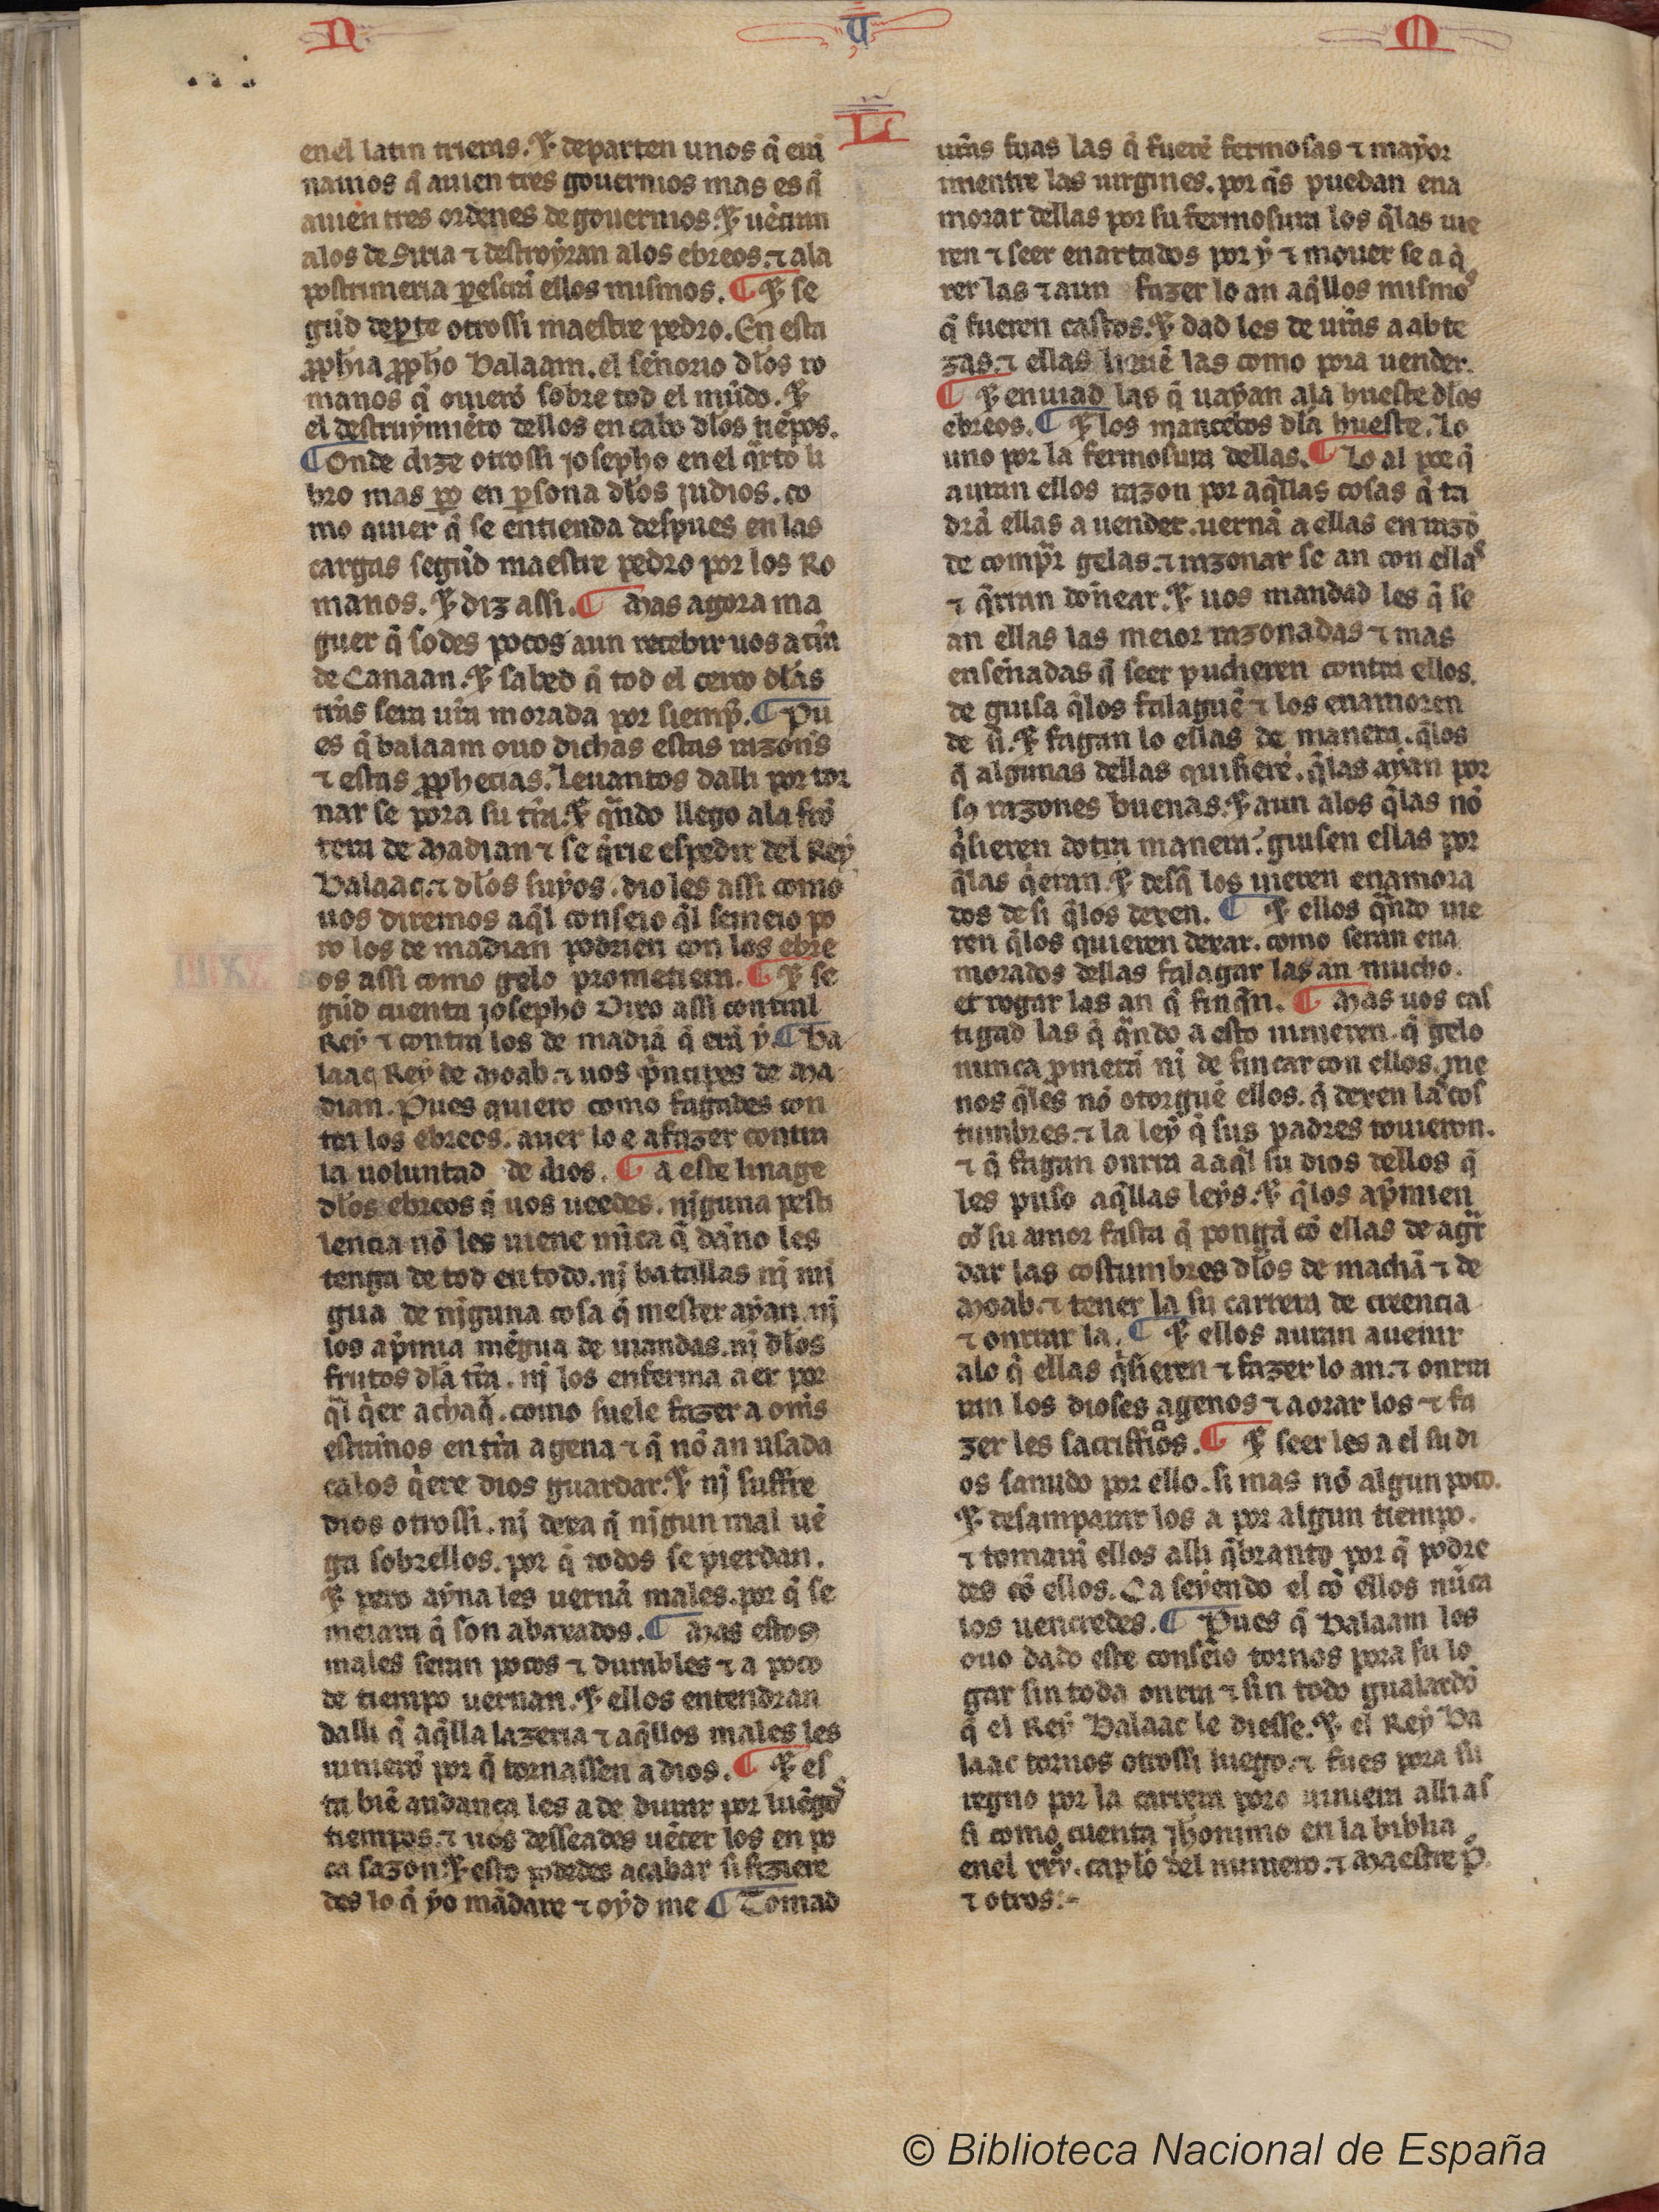 N U M
L
en el latin trieras. & departen unos q̃ erã
nauios q̃ auien tres gouernios mas es q̃
auien tres ordenes de gouernios. & uẽcran
a los de Siria ⁊ destroyran a los ebreos. ⁊ a la
postrimeria ꝑescrã ellos mismos. ¶ & se
gũd deꝑte otrossi maestre pedro. En esta
ꝓph̃ia ꝓph̃o Balaam. el sẽnorio dl̃os ro
manos q̃ ouierõ sobre tod el mũdo. &
el destruymiẽto dellos en cabo dl̃os tiẽpos.
¶ Onde dize otrossi josepho en el q̃rto li
bro mas ꝑo en ꝑsona dl̃os judios. co
mo quier q̃ se entienda despues en las
cargas segũd maestre pedro por los Ro
manos. & diz assi. ¶ Mas agora ma
guer q̃ sodes pocos aun recebir uos a tr̃ra
de Canaan. & sabed q̃ tod el cerco dl̃as
tr̃ras sera ur̃a morada por siemp̃. ¶ Pu
es q̃ balaam ouo dichas estas razon̄s
⁊ estas ꝓphecias. leuantos dalli por tor
nar se pora su tr̃ra. & q̃ndo llego a la frõ
tera de Madian ⁊ se q̃rie espedir del Rey
Balaac. ⁊ dl̃os suyos. dio les assi como
uos diremos aq̃l conseio q̃l semeio po
ro los de madian podrien con los ebre
os assi como gelo prometiera. ¶ & se
gũd cuenta josepho Dixo assi contral
Rey ⁊ contra los de madiã q̃ erã y. ¶ Ba
laac Rey de Moab. ⁊ uos p̃ncipes de Ma
dian. Pues quiero como fagades con
tra los ebreos. auer lo e a fazer contra
la uoluntad de dios. ¶ a este linage
dl̃os ebreos q̃ uos ueedes. njguna pesti
lencia nõ les uiene nũca q̃ dãno les
tenga de tod en todo. nj batallas nj mj
gua de njguna cosa q̃ mester ayan. nj
los ap̃mia mẽgua de uiandas. nj dl̃os
frutos dl̃a tr̃ra. nj los enferma aer por
q̃l q̃er achaq̃. como suele fazer a om̃s
estrãnos en tr̃ra agena ⁊ q̃ nõ an usada
ca los q̃ere dios guardar. & nj suffre
dios otrossi. nj dexa q̃ njgun mal uẽ
ga sobrellos. por q̃ todos se pierdan.
& pero ayna les uernã males. por q̃ se
meiara q̃ son abaxados. ¶ Mas estos
males seran pocos ⁊ durables ⁊ a poco
de tiempo uernan. & ellos entendran
dalli q̃ aq̃lla lazeria ⁊ aq̃llos males les
uinierõ por q̃ tornassen a dios. ¶ & es
ta biẽ andança les a de durar por luẽgos
tiempos. ⁊ uos desseades uẽcer los en po
ca sazon. & esto podedes acabar si fiziere
des lo q̃ yo mãdare ⁊ oyd me ¶ Tomad
ur̃as fijas las q̃ fuerẽ fermosas ⁊ mayor
mientre las uirgines. por q̃s puedan ena
morar dellas por su fermosura los q̃ las uie
ren ⁊ seer enartados por y ⁊ mouer se a q̃
rer las ⁊ aun fazer lo an aq̃llos mismos
q̃ fueren castos. & dad les de ur̃as a abte
zas. ⁊ ellas lieuẽ las como pora uender.
¶ & enuiad las q̃ uayan a la hueste dl̃os
ebreos. ¶ & los mancebos dl̃a hueste. lo
uno por la fermosura dellas. ¶ Lo al por q̃
auran ellos razon por aq̃llas cosas q̃ ta
drã ellas a uender. uernã a ellas en razõ
de comp̃r gelas. ⁊ razonar se an con ellas
⁊ q̃rran doñear. & uos mandad les q̃ se
an ellas las meior razonadas ⁊ mas
ensẽnadas q̃ seer pudieren contra ellos.
de guisa q̃ los falaguẽ ⁊ los enamoren
de si. & fagan lo ellas de manera. q̃ los
q̃ algunas dellas quisierẽ. q̃ las ayan por
sꝯ razones buenas. & aun a los q̃ las nõ
q̃sieren dotra manera. guisen ellas por
q̃ las q̃eran. & desq̃ los uieren enamora
dos de si q̃ los dexen. ¶ & ellos q̃ndo uie
ren q̃ los quieren dexar. como seran ena
morados dellas falagar las an mucho.
et rogar las an q̃ finq̃n. ¶ Mas uos cas
tigad las q̃ q̃ndo a esto uinieren. q̃ gelo
nunca ꝓmetã nj de fincar con ellos. me
nos q̃ les nõ otorguẽ ellos. q̃ dexen las cos
tumbres. ⁊ la ley q̃ sus padres touieron.
⁊ q̃ fagan onrra a aq̃l su dios dellos q̃
les puso aq̃llas leys. & q̃ los ap̃mien
cõ su amor fasta q̃ pongã cõ ellas de agr̃
dar las costumbres dl̃os de machã ⁊ de
Moab. ⁊ tener la su carrera de creencia
⁊ onrrar la. ¶ & ellos auran auenir
a lo q̃ ellas q̃sieren ⁊ fazer lo an. ⁊ onrra
ran los dioses agenos ⁊ aorar los ⁊ fa
zer les sacrifficios. ¶ & seer les a el su di
os sanudo por ello. si mas nõ algun poco.
& desamparar los a por algun tiempo.
⁊ tomarã ellos alli q̃branto por q̃ podre
des cõ ellos. Ca seyendo el cõ ellos nũca
los uencredes. ¶ Pues q̃ Balaam les
ouo dado este conseio tornos pora su lo
gar sin toda onrra ⁊ sin todo gualardõ
q̃ el Rey Balaac le diesse. & el Rey Ba
laac tornos otrossi luego. ⁊ fues pora su
regno por la carrera poro uiniera alli as
si como cuenta jheronimo en la biblia
en el xxv. capl̃o del numero. ⁊ Maestre P.
⁊ otros:-
© Biblioteca Nacional de España